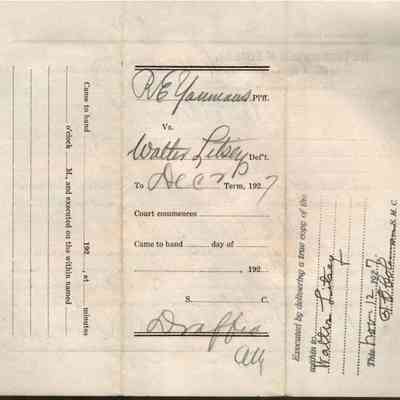 Came to hand 192 , at minutes
o'clock M., and executed on the within named
R E Yaumans Pl'ff.
Vs.
Walter Litsey Def't.
To Dec Term, 1927
Court commences
Came to hand day of
, 192
S. C.
Atty
Executed by delivering a true copy of the
within to
Walter Litsey
This Nov 12 1927